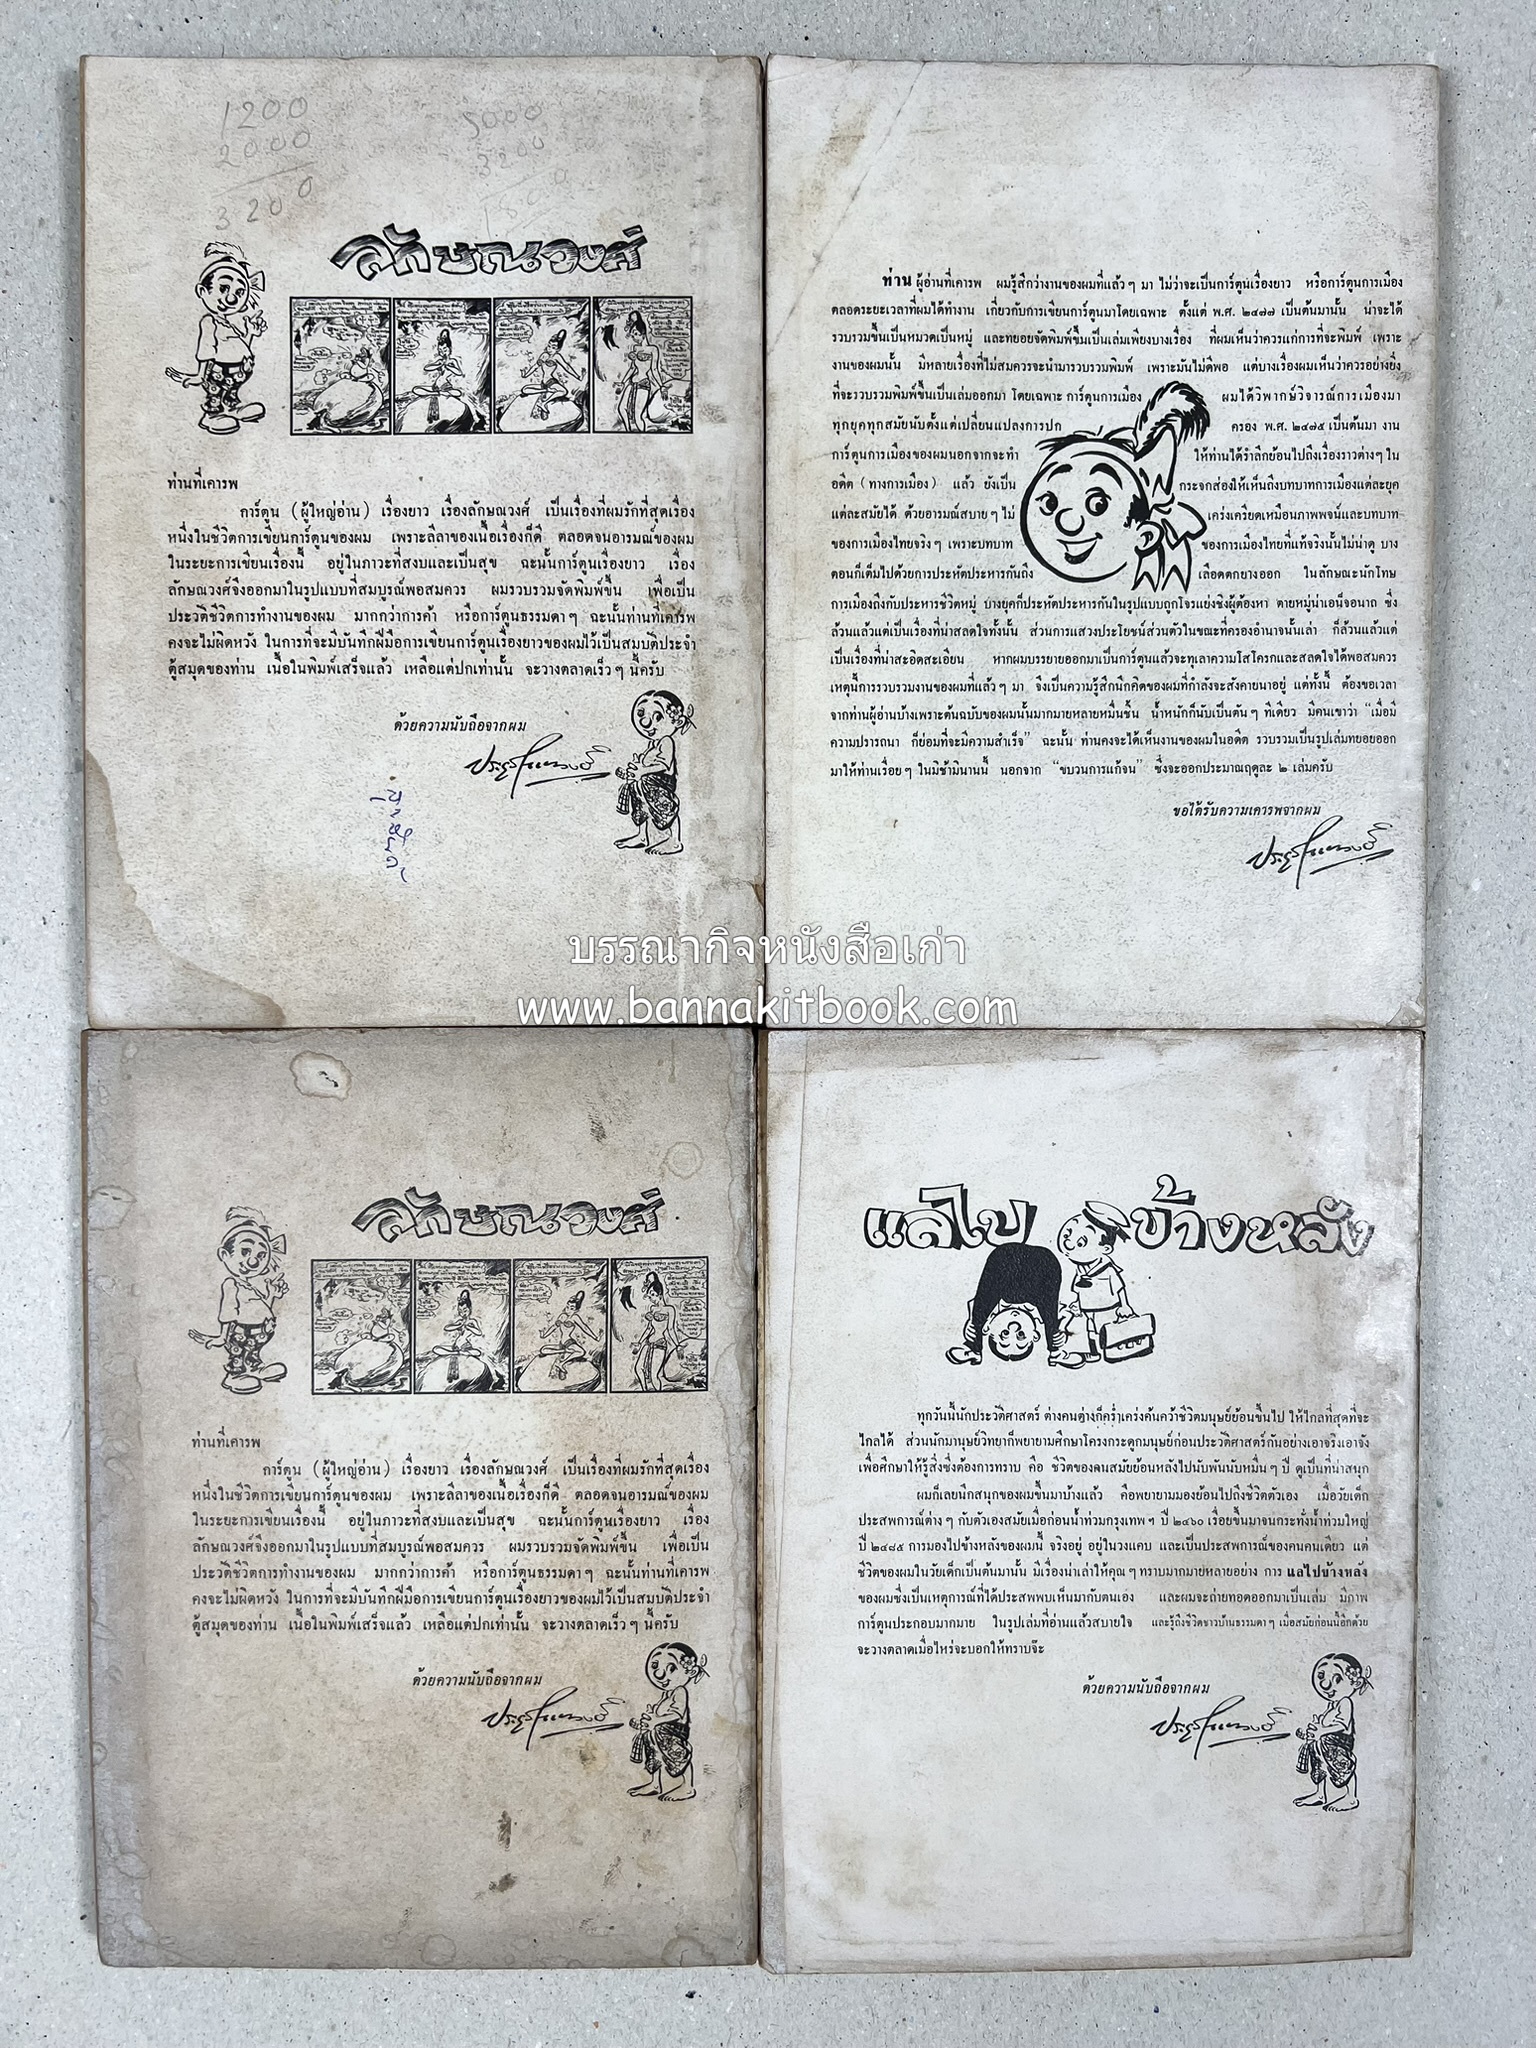 1200
2000
3200
5000
3200
1800
ลักษณวงศ์
ท่านที่เคารพ
การ์ตูน (ผู้ใหญ่อ่าน) เรื่องยาว เรื่องลักษณวงศ์ เป็นเรื่องที่ผมรักที่สุดเรื่อง
หนึ่งในชีวิตการเขียนการ์ตูนของผม เพราะลีลาของเนื้อเรื่องก็ดี ตลอดจนอารมณ์ของผม
ในระยะการเขียนเรื่องนี้ อยู่ในภาวะที่สงบและเป็นสุข ฉะนั้นการ์ตูนเรื่องยาว เรื่อง
ลักษณวงศ์จึงออกมาในรูปแบบที่สมบูรณ์พอสมควร ผมรวบรวมจัดพิมพ์ขึ้น เพื่อเป็น
ประวัติชีวิตการทำงานของผม มากกว่าการค้า หรือการ์ตูนธรรมดาๆ ฉะนั้นท่านที่เคารพ
คงจะไม่ผิดหวัง ในการที่จะมีบันทึกฝีมือการเขียนการ์ตูนเรื่องยาวของผมไว้เป็นสมบัติประจำ
ตู้สมุดของท่าน เนื้อในพิมพ์เสร็จแล้ว เหลือแต่ปกเท่านั้น จะวางตลาดเร็วๆ นี้ครับ
ด้วยความนับถือจากผม
ท่านผู้อ่านที่เคารพ ผมรู้สึกว่างานของผมที่แล้วๆ มา ไม่ว่าจะเป็นการ์ตูนเรื่องยาว หรือการ์ตูนการเมือง
ตลอดระยะเวลาที่ผมได้ทำงาน เกี่ยวกับการเขียนการ์ตูนมาโดยเฉพาะ ตั้งแต่ พ.ศ. ๒๔๗๗ เป็นต้นมานั้น น่าจะได้
รวบรวมขึ้นเป็นหมวดเป็นหมู่ และทยอยจัดพิมพ์ขึ้นเป็นเล่มเพียงบางเรื่อง ที่ผมเห็นว่าควรแก่การที่จะพิมพ์ เพราะ
งานของผมนั้น มีหลายเรื่องที่ไม่สมควรจะนำมารวบรวมพิมพ์ เพราะมันไม่ดีพอ แต่บางเรื่องผมเห็นว่าควรอย่างยิ่ง
ที่จะรวบรวมพิมพ์ขึ้นเป็นเล่มออกมา โดยเฉพาะ การ์ตูนการเมือง ผมได้วิพากษ์วิจารณ์การเมืองมา
ทุกยุคทุกสมัยนับตั้งแต่เปลี่ยนแปลงการปก ครอง พ.ศ. ๒๔๗๕ เป็นต้นมา งาน
การ์ตูนการเมืองของผมนอกจากจะทำ ให้ท่านได้รำลึกย้อนไปถึงเรื่องราวต่างๆ ใน
อดีต (ทางการเมือง) แล้ว ยังเป็น กระจกส่องให้เห็นถึงบทบาทการเมืองแต่ละยุค
แต่ละสมัยได้ ด้วยอารมณ์สบายๆ ไม่ เคร่งเครียดเหมือนภาพพจน์และบทบาท
ของการเมืองไทยจริงๆ เพราะบทบาท ของการเมืองไทยที่แท้จริงนั้นไม่น่าดู บาง
ตอนก็เต็มไปด้วยการประหัตประหารกันถึง เลือดตกยางออก ในลักษณะนักโทษ
การเมืองถึงกับประหารชีวิตหมู่ บางยุคก็ประหัตประหารกันในรูปแบบถูกโจรแย่งชิงผู้ต้องหา ตายหมู่น่าเอน็จอนาถ ซึ่ง
ล้วนแล้วแต่เป็นเรื่องที่น่าสลดใจทั้งนั้น ส่วนการแสวงประโยชน์ส่วนตัวในขณะที่ครองอำนาจนั้นเล่า ก็ล้วนแล้วแต่
เป็นเรื่องที่น่าสะอิดสะเอียน หากผมบรรยายออกมาเป็นการ์ตูนแล้วจะทุเลาความโสโครกและสลดใจได้พอสมควร
เหตุนี้การรวบรวมงานของผมที่แล้วๆ มา จึงเป็นความรู้สึกนึกคิดของผมที่กำลังจะสังคายนาอยู่ แต่ทั้งนี้ ต้องขอเวลา
จากท่านผู้อ่านบ้างเพราะต้นฉบับของผมนั้นมากมายหลายหมื่นชิ้น น้ำหนักก็นับเป็นตันๆ ทีเดียว มีคนเขาว่า “เมื่อมี
ความปรารถนา ก็ย่อมที่จะมีความสำเร็จ” ฉะนั้น ท่านคงจะได้เห็นงานของผมในอดีต รวบรวมเป็นรูปเล่มทยอยออก
มาให้ท่านเรื่อยๆ ในมิช้ามินานนี้ นอกจาก “ขบวนการแก้จน” ซึ่งจะออกประมาณฤดูละ ๒ เล่มครับ
ขอได้รับความเคารพจากผม
บรรณากิจหนังสือเก่า
www.bannakitbook.com
ลักษณวงศ์
ท่านที่เคารพ
การ์ตูน (ผู้ใหญ่อ่าน) เรื่องยาว เรื่องลักษณวงศ์ เป็นเรื่องที่ผมรักที่สุดเรื่อง
หนึ่งในชีวิตการเขียนการ์ตูนของผม เพราะลีลาของเนื้อเรื่องก็ดี ตลอดจนอารมณ์ของผม
ในระยะการเขียนเรื่องนี้ อยู่ในภาวะที่สงบและเป็นสุข ฉะนั้นการ์ตูนเรื่องยาว เรื่อง
ลักษณวงศ์จึงออกมาในรูปแบบที่สมบูรณ์พอสมควร ผมรวบรวมจัดพิมพ์ขึ้น เพื่อเป็น
ประวัติชีวิตการทำงานของผม มากกว่าการค้า หรือการ์ตูนธรรมดาๆ ฉะนั้นท่านที่เคารพ
คงจะไม่ผิดหวัง ในการที่จะมีบันทึกฝีมือการเขียนการ์ตูนเรื่องยาวของผมไว้เป็นสมบัติประจำ
ตู้สมุดของท่าน เนื้อในพิมพ์เสร็จแล้ว เหลือแต่ปกเท่านั้น จะวางตลาดเร็วๆ นี้ครับ
ด้วยความนับถือจากผม
แลไปข้างหลัง
ทุกวันนี้นักประวัติศาสตร์ ต่างคนต่างก็คร่ำเคร่งค้นคว้าชีวิตมนุษย์ย้อนขึ้นไป ให้ไกลที่สุดที่จะ
ไกลได้ ส่วนนักมานุษย์วิทยาก็พยายามศึกษาโครงกระดูกมนุษย์ก่อนประวัติศาสตร์กันอย่างเอาจริงเอาจัง
เพื่อศึกษาให้รู้สิ่งซึ่งต้องการทราบ คือ ชีวิตของคนสมัยย้อนหลังไปนับพันนับหมื่นๆ ปี ดูเป็นที่น่าสนุก
ผมก็เลยนึกสนุกของผมขึ้นมาบ้างแล้ว คือพยายามมองย้อนไปถึงชีวิตตัวเอง เมื่อวัยเด็ก
ประสพการณ์ต่างๆ กับตัวเองสมัยเมื่อก่อนน้ำท่วมกรุงเทพฯ ปี ๒๔๖๐ เรื่อยขึ้นมาจนกระทั่งน้ำท่วมใหญ่
ปี ๒๔๘๕ การมองไปข้างหลังของผมนี้ จริงอยู่ อยู่ในวงแคบ และเป็นประสพการณ์ของคนคนเดียว แต่
ชีวิตของผมในวัยเด็กเป็นต้นมานั้น มีเรื่องน่าเล่าให้คุณๆ ทราบมากมายหลายอย่าง การ แลไปข้างหลัง
ของผมซึ่งเป็นเหตุการณ์ที่ได้ประสพพบเห็นมากับตนเอง และผมจะถ่ายทอดออกมาเป็นเล่ม มีภาพ
การ์ตูนประกอบมากมาย ในรูปเล่มที่อ่านแล้วสบายใจ และรู้ถึงชีวิตชาวบ้านธรรมดาๆ เมื่อสมัยก่อนนี้อีกด้วย
จะวางตลาดเมื่อไหร่จะบอกให้ทราบจ๊ะ
ด้วยความนับถือจากผม